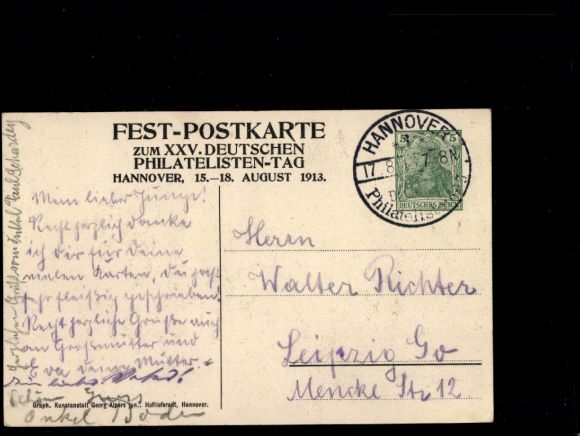 FEST-POSTKARTE
ZUM XXV. DEUTSCHEN
PHILATELISTEN-TAG
HANNOVER, 15.—18. AUGUST 1913.
HANNOVER
17.8. 7-8N
Philatelisten
5 5
DEUTSCHES REICH
Mein lieber Junge!
Recht herzlich danke
ich Dir für Deine
vielen Karten, Du hast
sehr fleißig geschrieben!
Recht herzliche Grüße auch
von Großmutter und
Deine Mutter
Dein lieber
Onkel
Herrn
Walter Richter
Leipzig Go
Mencke Str 12
Graph. Kunstanstalt Georg Alpers jun., Hoflieferant, Hannover.